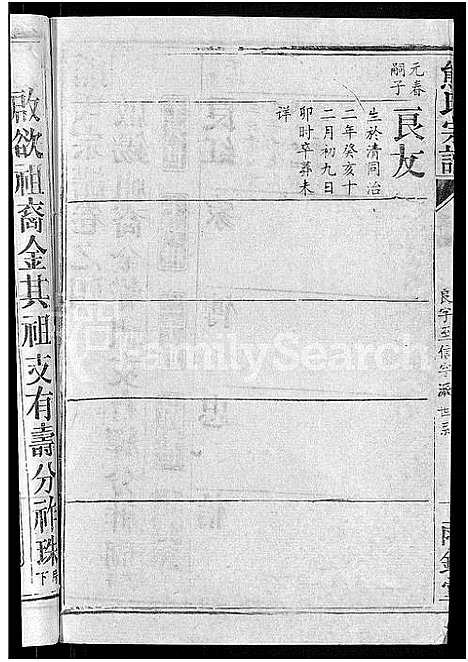 熊氏宗譜
良字至信字派世系
元春
嗣子
良友
生於清同治
二年癸亥十
二月初九日
卯時卒葬未
詳
啟欲祖裔金其祖支有壽分祚珠
下
FamilySearch